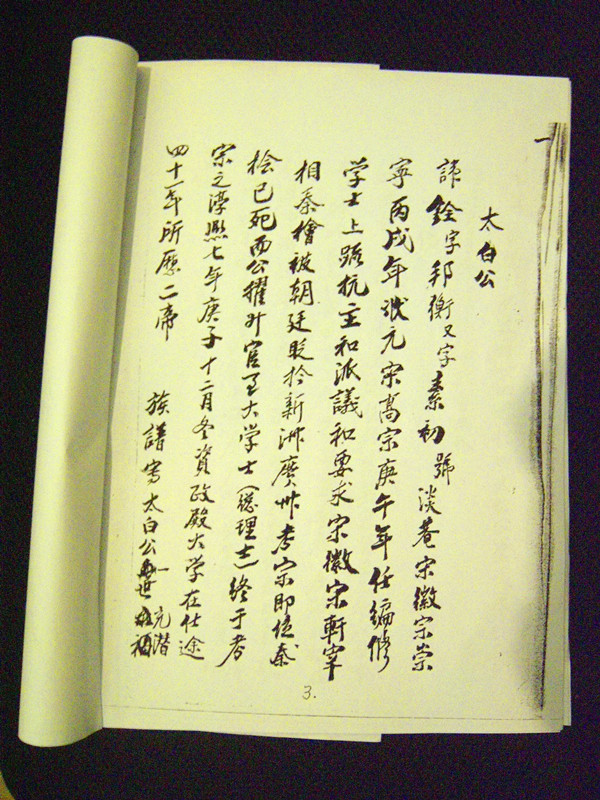 太白公
諱銓字邦衡又字素初號淡菴宋徽宗崇
寧丙戌年狀元宋高宗庚午年任编修
学士上疏抗主和派議和要求宋徽宋軒宰
相秦檜被朝廷貶於新洲廣州孝宗即位秦
桧已死而公擢升官至大学士(總理志)终于孝
宗之淳熙七年庚子十二月冬資政殿大学在仕途
四十一年所歷二帝
族譜寫太白公
一世
元潜
3.